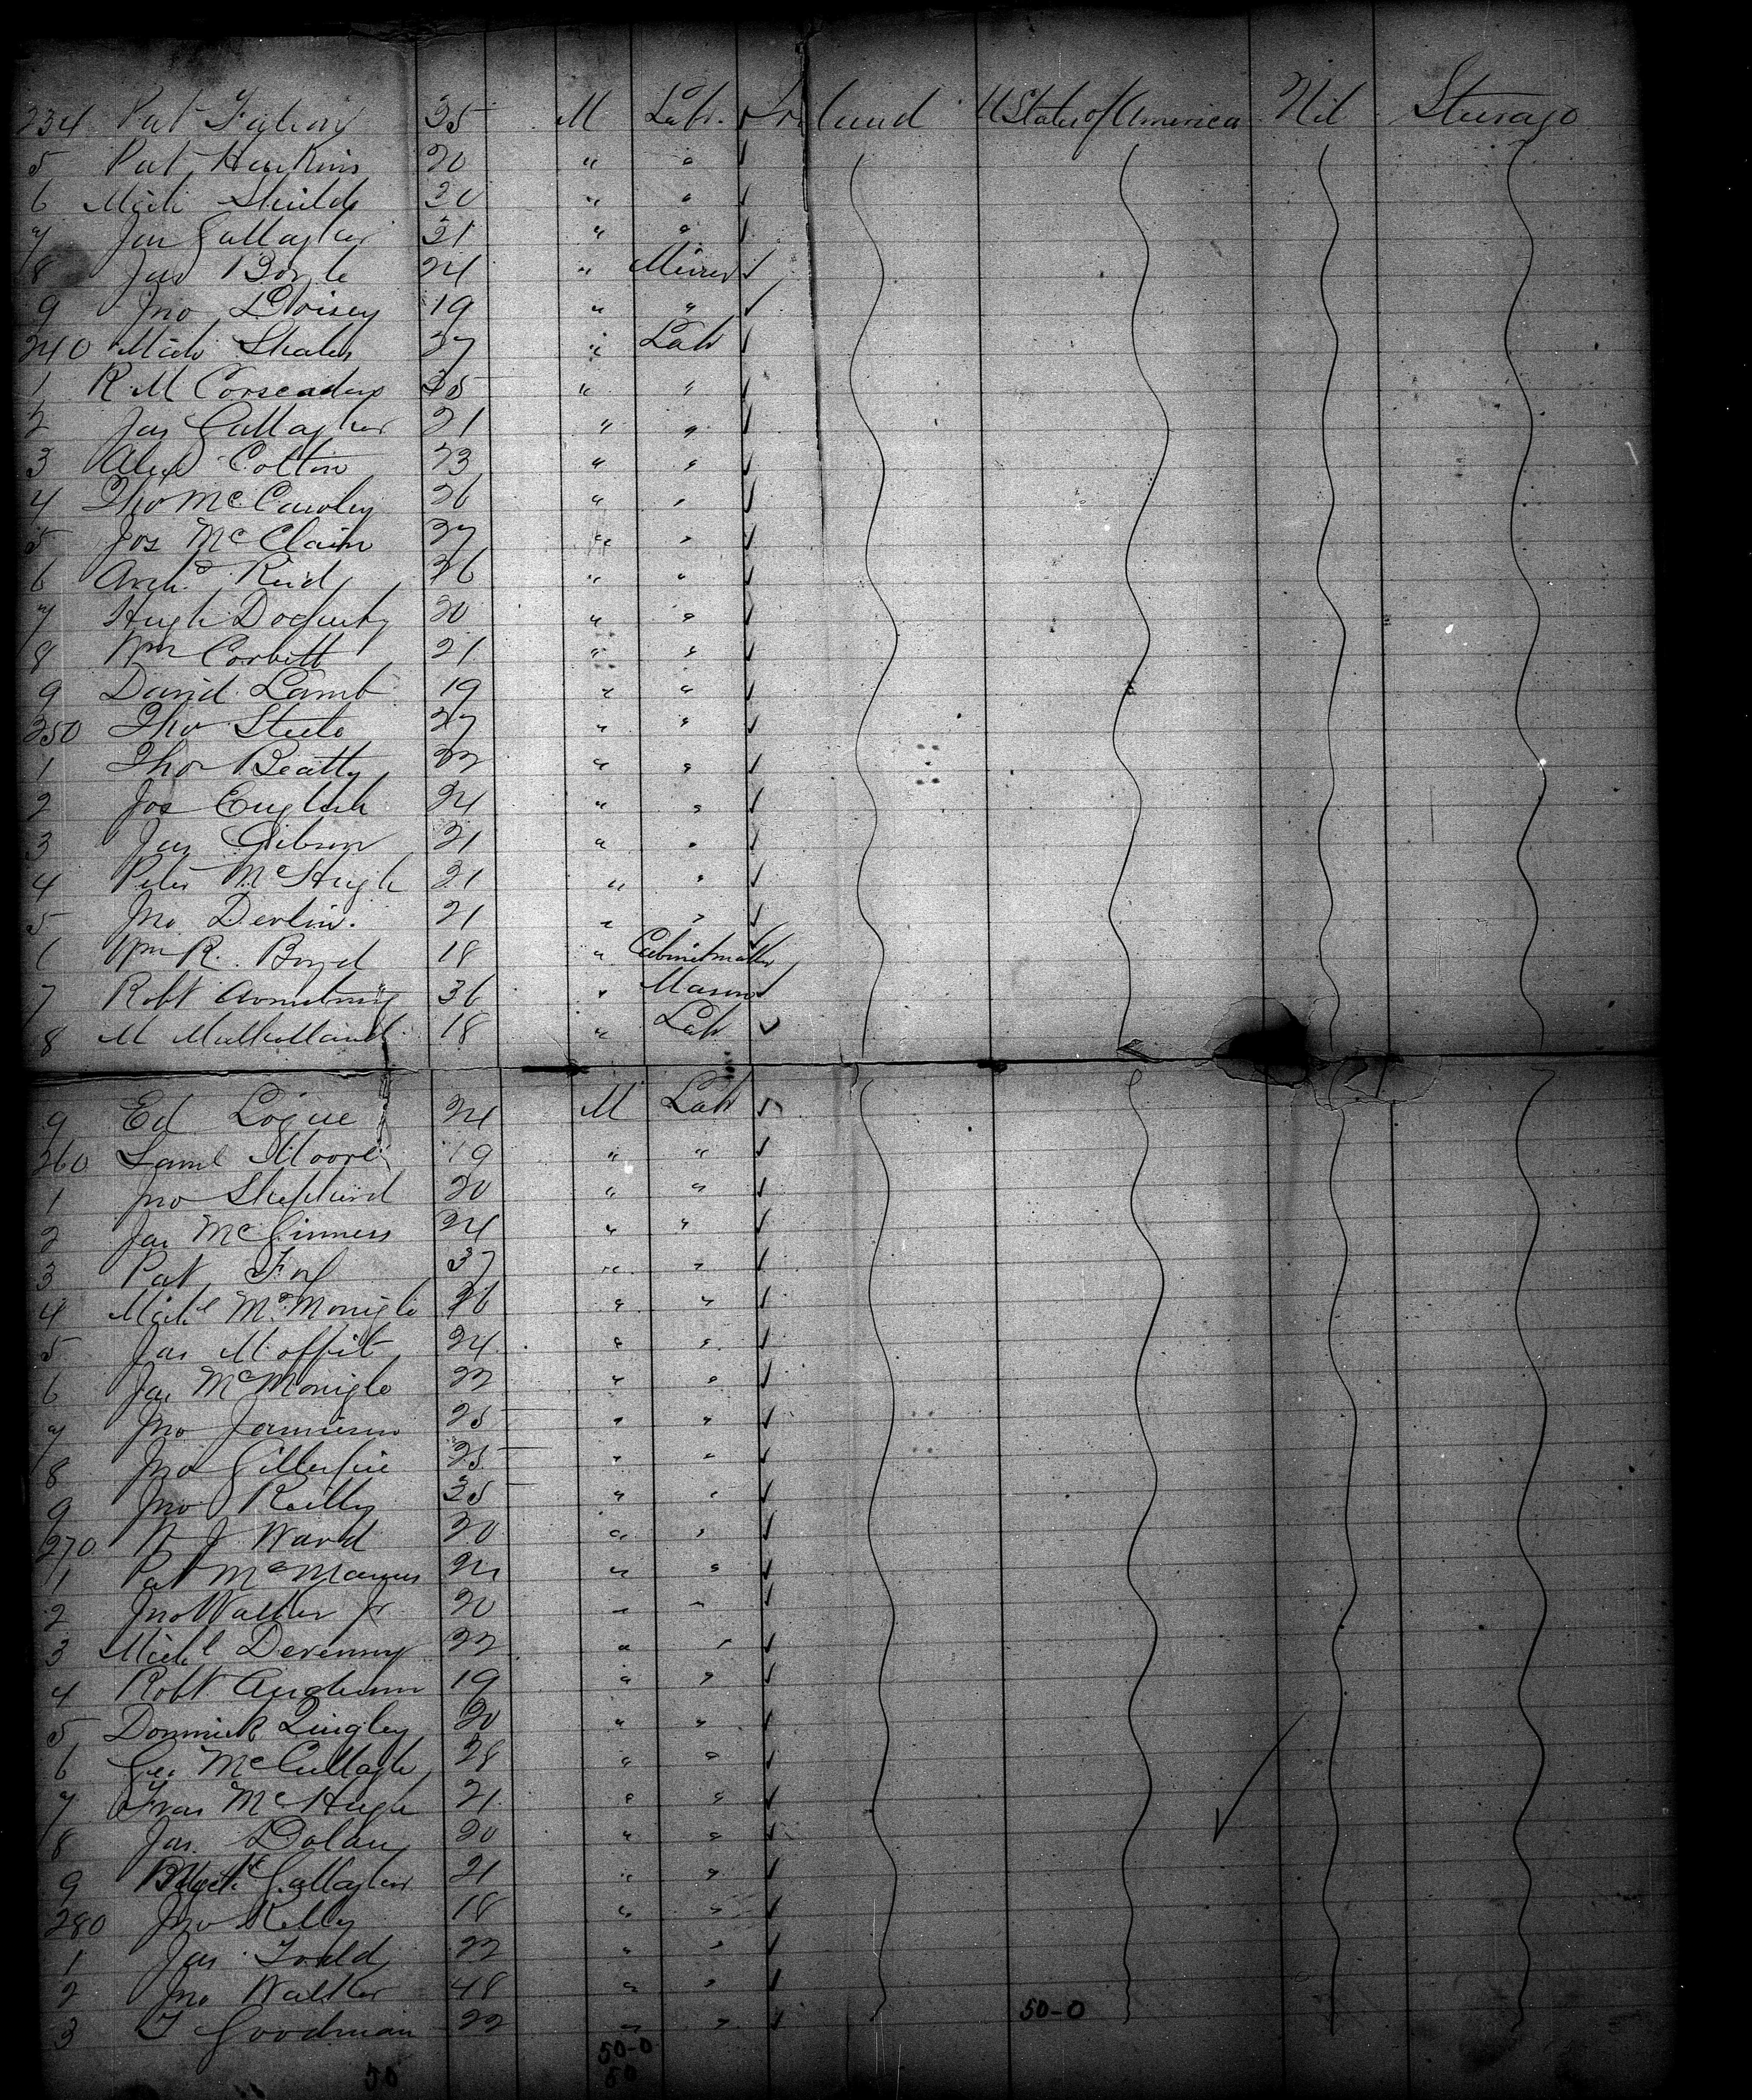 234 Pat 35 M Labr. Ireland U States of America Nil Steerage
5 Pat Harkins 20 " "
6 Mich Shields 30 " "
7 Jas Gallagher 31 " "
8 Jas Boyle 24 " Miner
9 Jno 19 " "
240 Mich 37 " Labr
1 R. M. 35 " "
2 Jas Gallagher 21 " "
3 Alex Colton 23 " "
4 Tho McCawley 26 " "
5 Jos McClain 27 " "
6 Archd Reid 36 " "
7 Hugh Docherty 20 " "
8 Wm Corbett 21 " "
9 David Lamb 19 " "
250 Tho Steele 27 " "
1 Thos Beatty 22 " "
2 Jos English 24 " "
3 Jas Gibson 21 " "
4 Peter McHugh 21 " "
5 Jno Devlin. 21 " "
6 Wm R. Boyd 18 " Cabinetmaker
7 Robt Armstrong 36 " Mason
8 M Mulholland 18 " Labr
9 Ed Logue 24 M Labr
260 Saml Moore 19 " "
1 Jno Shepherd 20 " "
2 Jas McGinness 24 " "
3 Pat Foy 37 " "
4 Michl McMonigle 26 " "
5 Jas Moffit 24 " "
6 Jas McMonigle 22 " "
7 Jno Jamieson 25 " "
8 Jno Gillespie 25 " "
9 Jno Reilly 35 " "
270 J Ward 20 " "
1 Pat McManus " "
2 Jno Walker Jr 20 " "
3 Michl Devenny 22 " "
4 Robt 19 " "
5 Dominick Quigley 20 " "
6 Geo McCullagh 28 " "
7 Fras McHugh 21 " "
8 Jas. Dolan 20 " "
9 Gallagher 21 " "
280 Jno Kelly 18 " "
1 Jas Todd 22 " "
2 Jno Walker 48 " "
3 T Goodman 22 " " 50-0
50-0
50 50